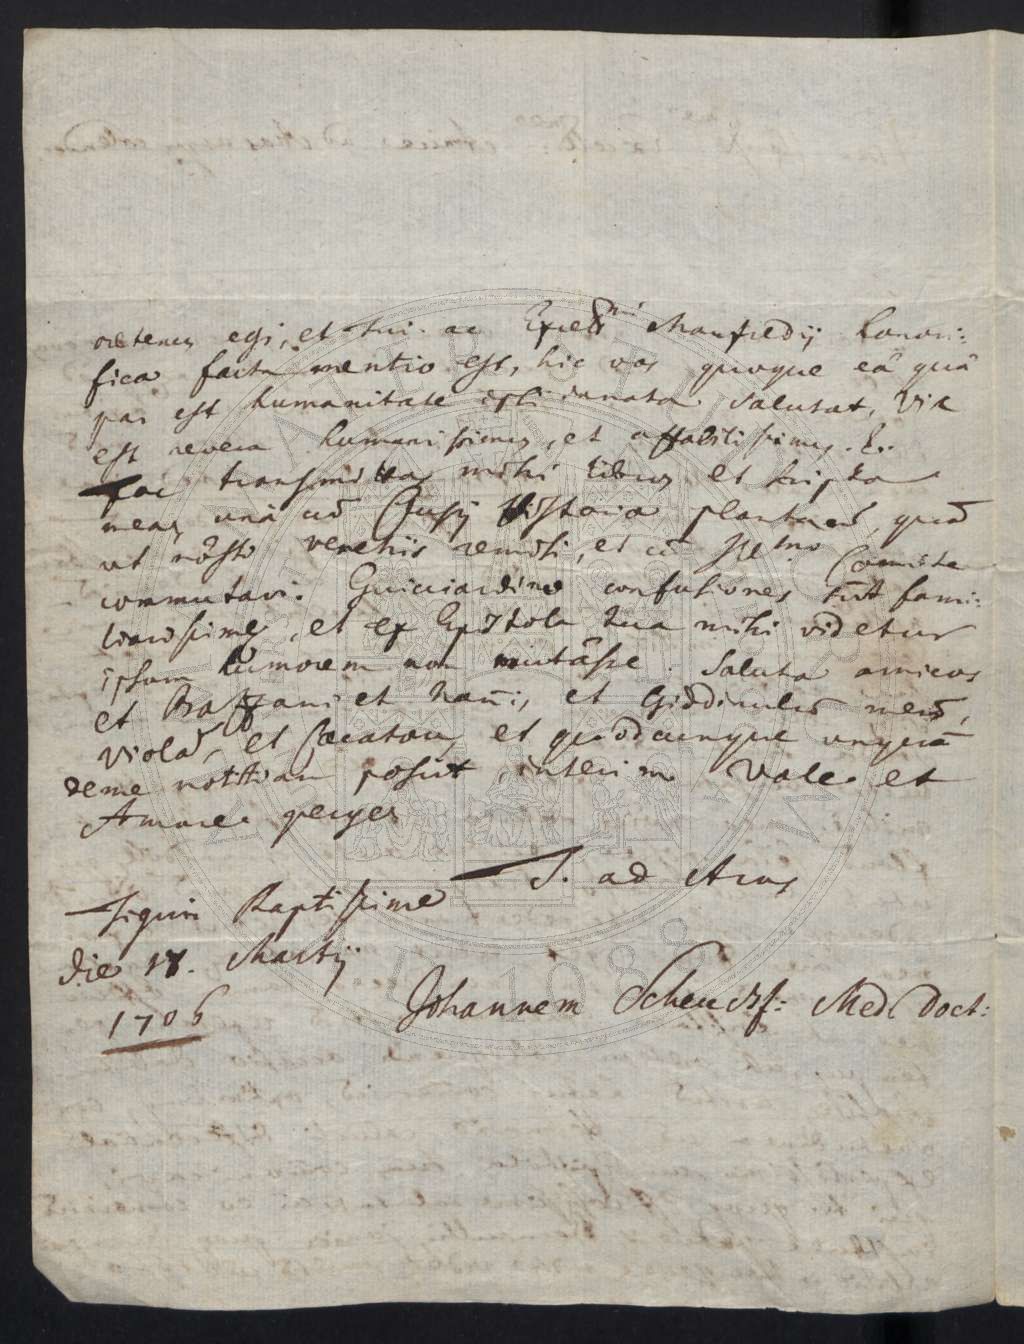 egi, et tui. ac Manfredij honori:
fica facta mentio est, hic vos quoque eâ quâ
par est humanitate salutat, Vir
est revera humanissimus, et affabilissimus. &.
fac transmittas mihi libros et scripta
meas unà cū Historia plantarū, quā
ut nôsti venetiis remisi, et cū Comite
commutavi. Guicciardinæ confusiones sūt fami:
liarissimæ, et ex Epistola tua mihi videtur
ipsum humorem non mutâsse. Saluta amicos
et et Nañi, et meū,
Violā, et et quodcunque unquā
de me notitiam posuit, interim Vale. et
Amare. perges
T. ad Aras
Tiguri Raptissime
die 18. Martij
1706
Johannem Scheuchz: Med. Doct: